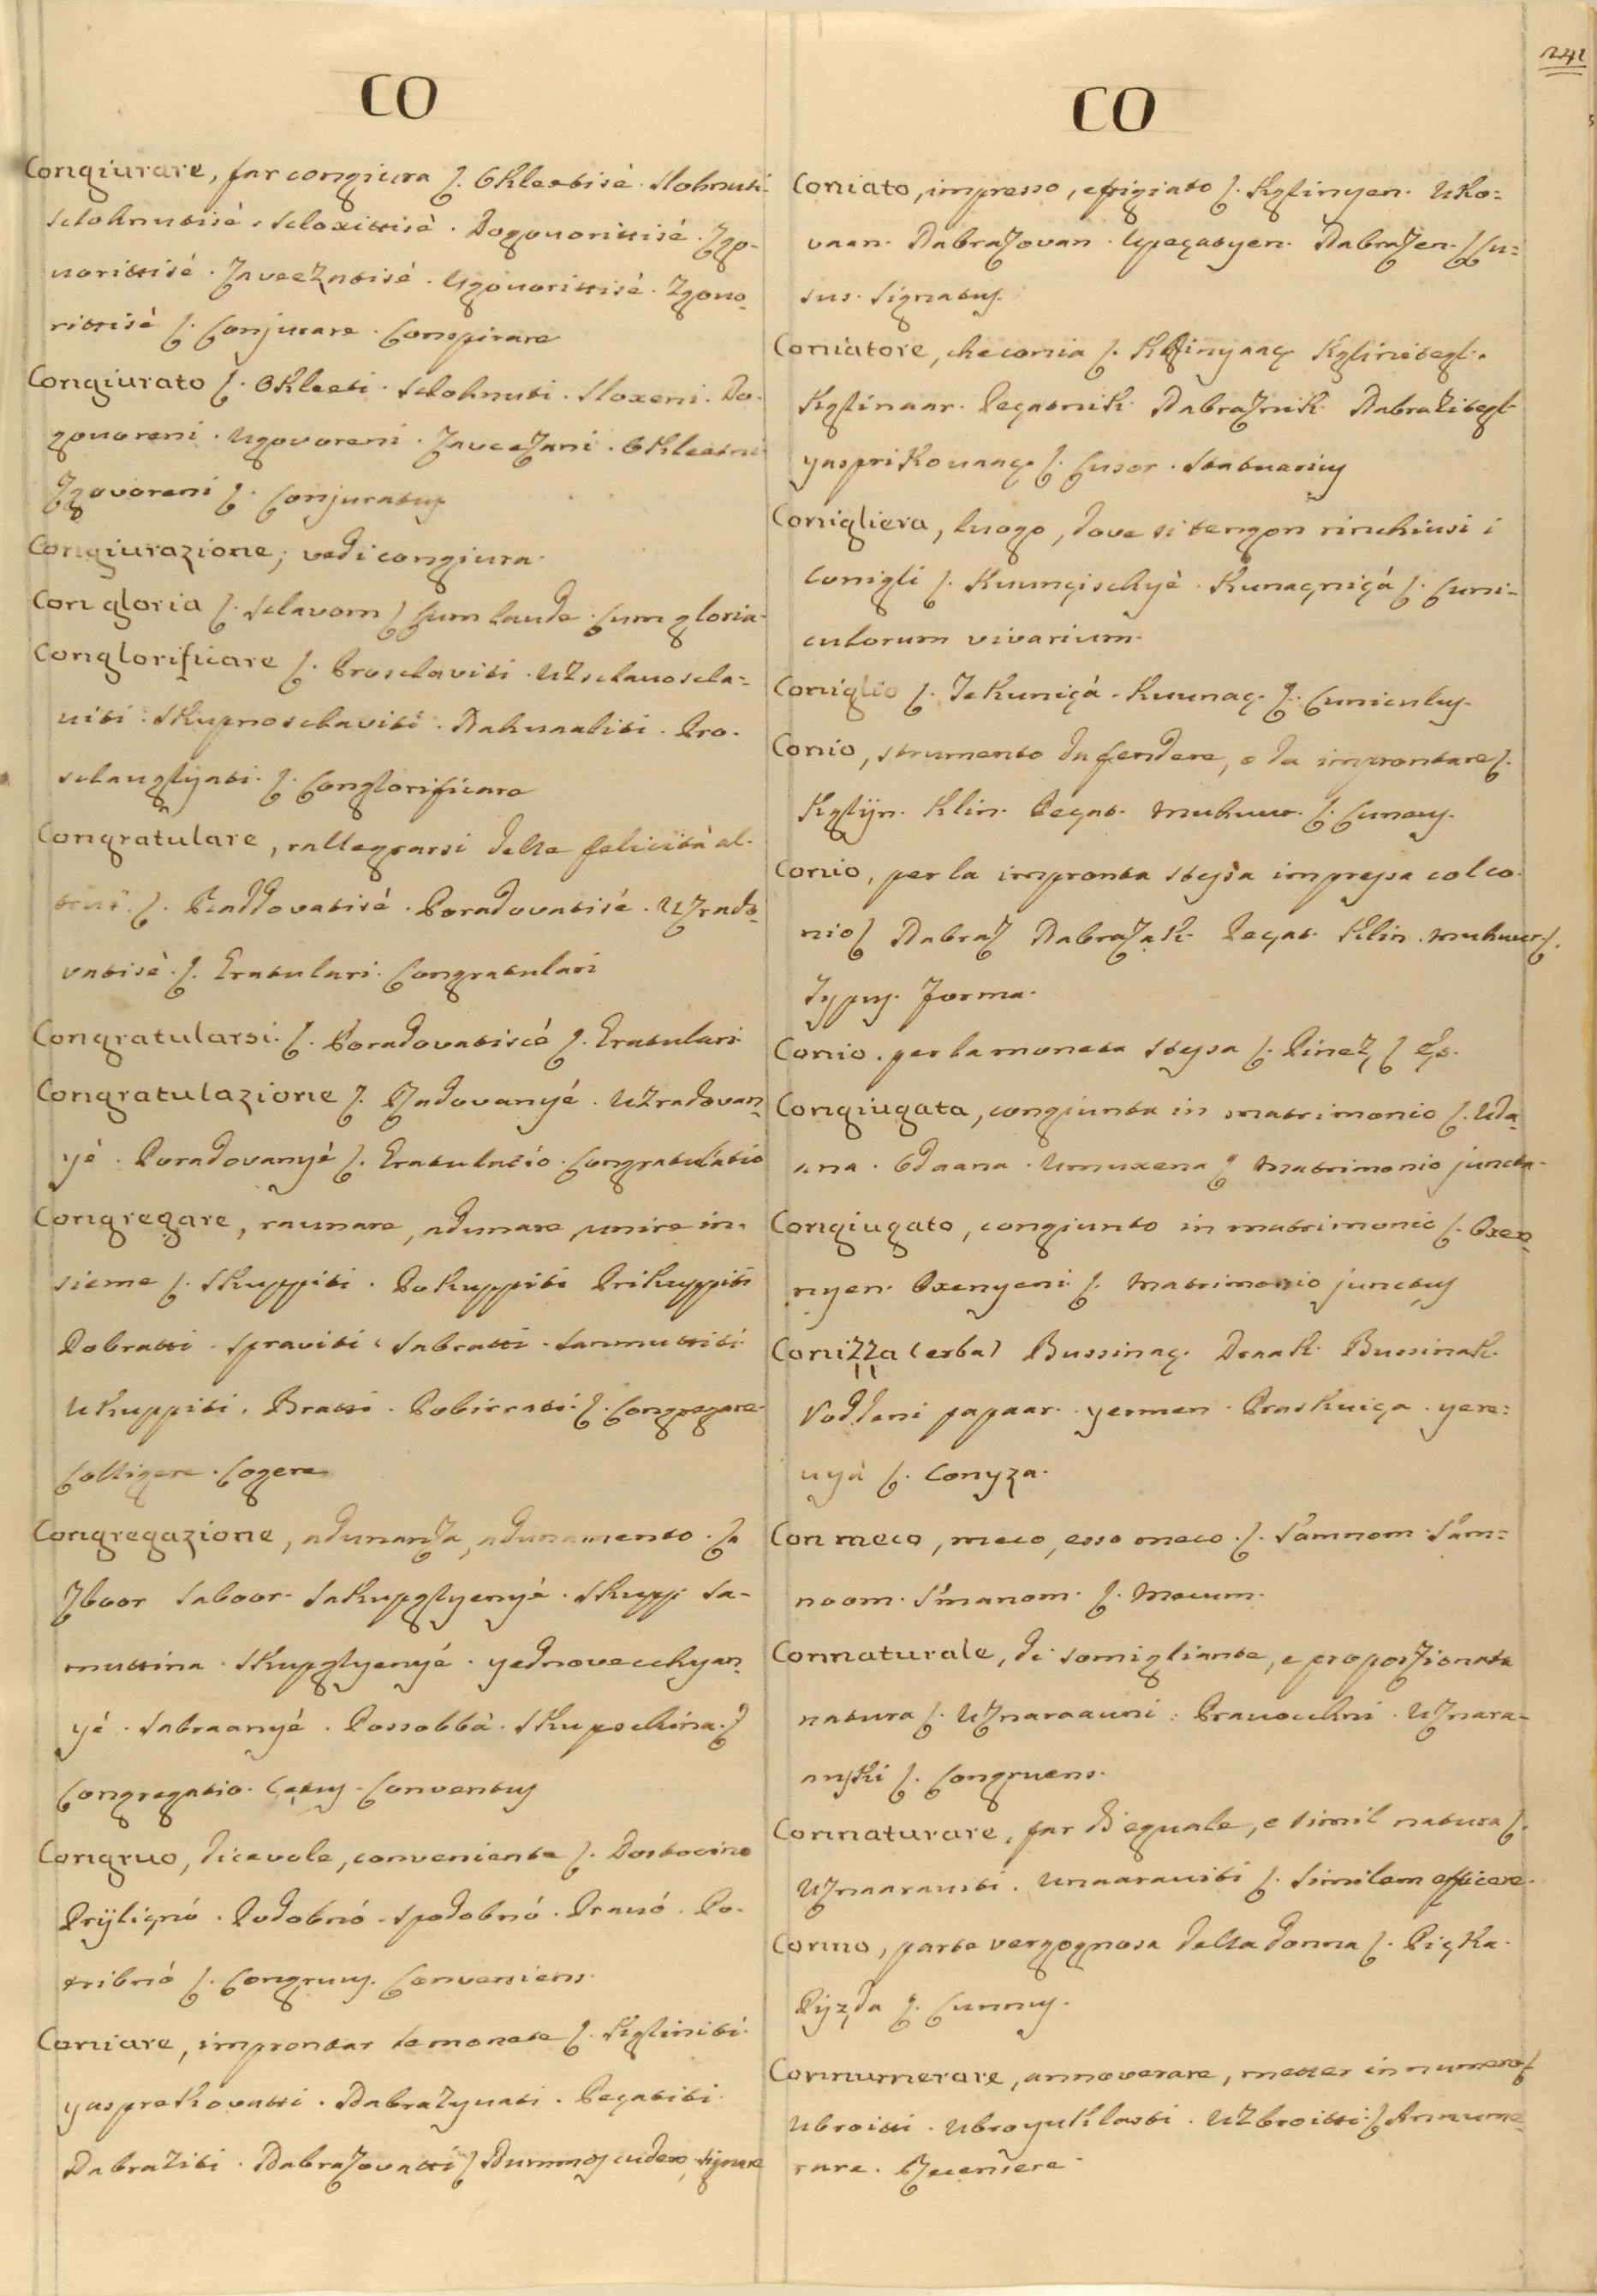 241
CO
Congiurare, far congiura ſ. Okleetisè. Slohnuti
sclohnutisè. scloxittisè. Dogouorittisè. Zgo-
uorittisè. Zaveezatisè. Ugouorittisè. Zgouo-
rittisè ſ. Conjurare. Conspirare
Congiurato ſ. Okleeti. sclohnuti. Sloxeni. Do-
gouoreni. Ugovoreni. Zaveezani. Okleetni
Zgovoreni ſ. Conjuratus
Congiurazione; vedi congiura.
Con gloria ſ. sclavom ſ Cum laude. Cum gloria.
Conglorificare ſ. Prosclaviti. Uzsclauoscla-
uiti. Skupnosclaviti. Nahuaaliti. Pro-
sclauglyati. ſ. Conglorificare
Congratulare, rallegrarsi della felicità al-
trui. ſ. Raddovatisè. Poradovatisè. Uzrado-
vatisè. ſ. Gratulari. Congratulari
Congratularsi. ſ. Poradovatiscè ſ. Gratulari
Congratulazione ſ. Radovanyé. Uzradovan-
yé. Poradovanyè ſ. Gratulatio. Congratulatio
Congregare, raunare, adunare, unire in-
sieme ſ. Skuppiti. Pokuppiti Prikuppiti
Pobratti. Spraviti. Sabratti. Sanmuttiti
Ukuppiti. Bratti. Pobirrati. ſ. Congregare.
Colligere. Cogere
Congregazione, adunanza, adunamento. ſa
Zboor Saboor. Sakupglyenyè. Skupp. Sa-
muttina. Skupglyenyé. yednovecchyan-
yé. Sabraanyé. Possobbà. Skupschina. ſ
Congregatio. Cętus. Conventus
Congruo, dicevole, conveniente ſ. Dostoeino
Priyliçnó. Podobnó. Spodobnó. Prauó. Po-
tribnó ſ. Congruus. Conveniens.
Coniare, improntar le monete ſ. Kgliniti.
yasprekovatti. Nabrazyvati. Peçatiti.
Nabraziti. Nabrazovatti ſ Nummos cudere, signare
CO
Coniato, impresso, effigiato ſ. Kglinyen. Uko-
vaan. Nabrazovan. Upeçatyen. Nabrazen. ſ Cu-
sus. Signatus.
Coniatore, che conia ſ. Kglinyaaç Kglinitegl.
Kglinaar. Peçatnik. Nabraznik. Nabrazitegl
yasprikouaaç. ſ. Cusor. Statuarius
Conigliera, luogo, dove si tengon rinchiusi i
Conigli ſ. Kuunçischyè. Kunaçniçá ſ. Cuni-
culorum vivarium.
Coniglio ſ. Zekuniçà. Kuunaç. ſ. Cuniculus.
Conio, strumento da fendere, o da improntare ſ.
Kgliyn. Klin. Peçat. Muhuur. ſ. Cuneus.
Conio, per la impronta stessa impressa col co-
nio ſ Nabraz Nabrazak. Peçat. Klin. Muhuur ſ.
Typus. Forma.
Conio. per la moneta stessa ſ. Pinez ſ Ęs.
Congiugata, congiunta in matrimonio ſ. Uda-
ana. Odaana. Umuxena ſ Matrimonio juncta.
Congiugato, congiunto in matrimonio ſ. Oxe-
nyen. Oxenyeni. ſ. Matrimonio junctus
Conizza (erba) Bussinaç. Draak. Bussinak.
Vodleni papaar. yermen. Praskuiça. yere-
uyà ſ. Conyza.
Con meco, meco, esso meco. ſ. Samnom. Sam-
noom. S'manom. ſ. Mecum.
Connaturale, di somigliante, e proporzionata
natura ſ. Uznaraauni: Prauocchni. Uznara-
auski ſ. Congruens.
Connaturare, far di eguale, e simil natura ſ.
Uznaarauiti. Unaarauiti ſ. Similem efficere.
Conno, parte vergognosa della donna ſ. Piçka.
Piyzda ſ. Cunnus.
Connumerare, annoverare, metter in numero ſ
Ubroitti. Ubroyuklasti. Uzbroitti. ſ Annume-
rare. Recensere.